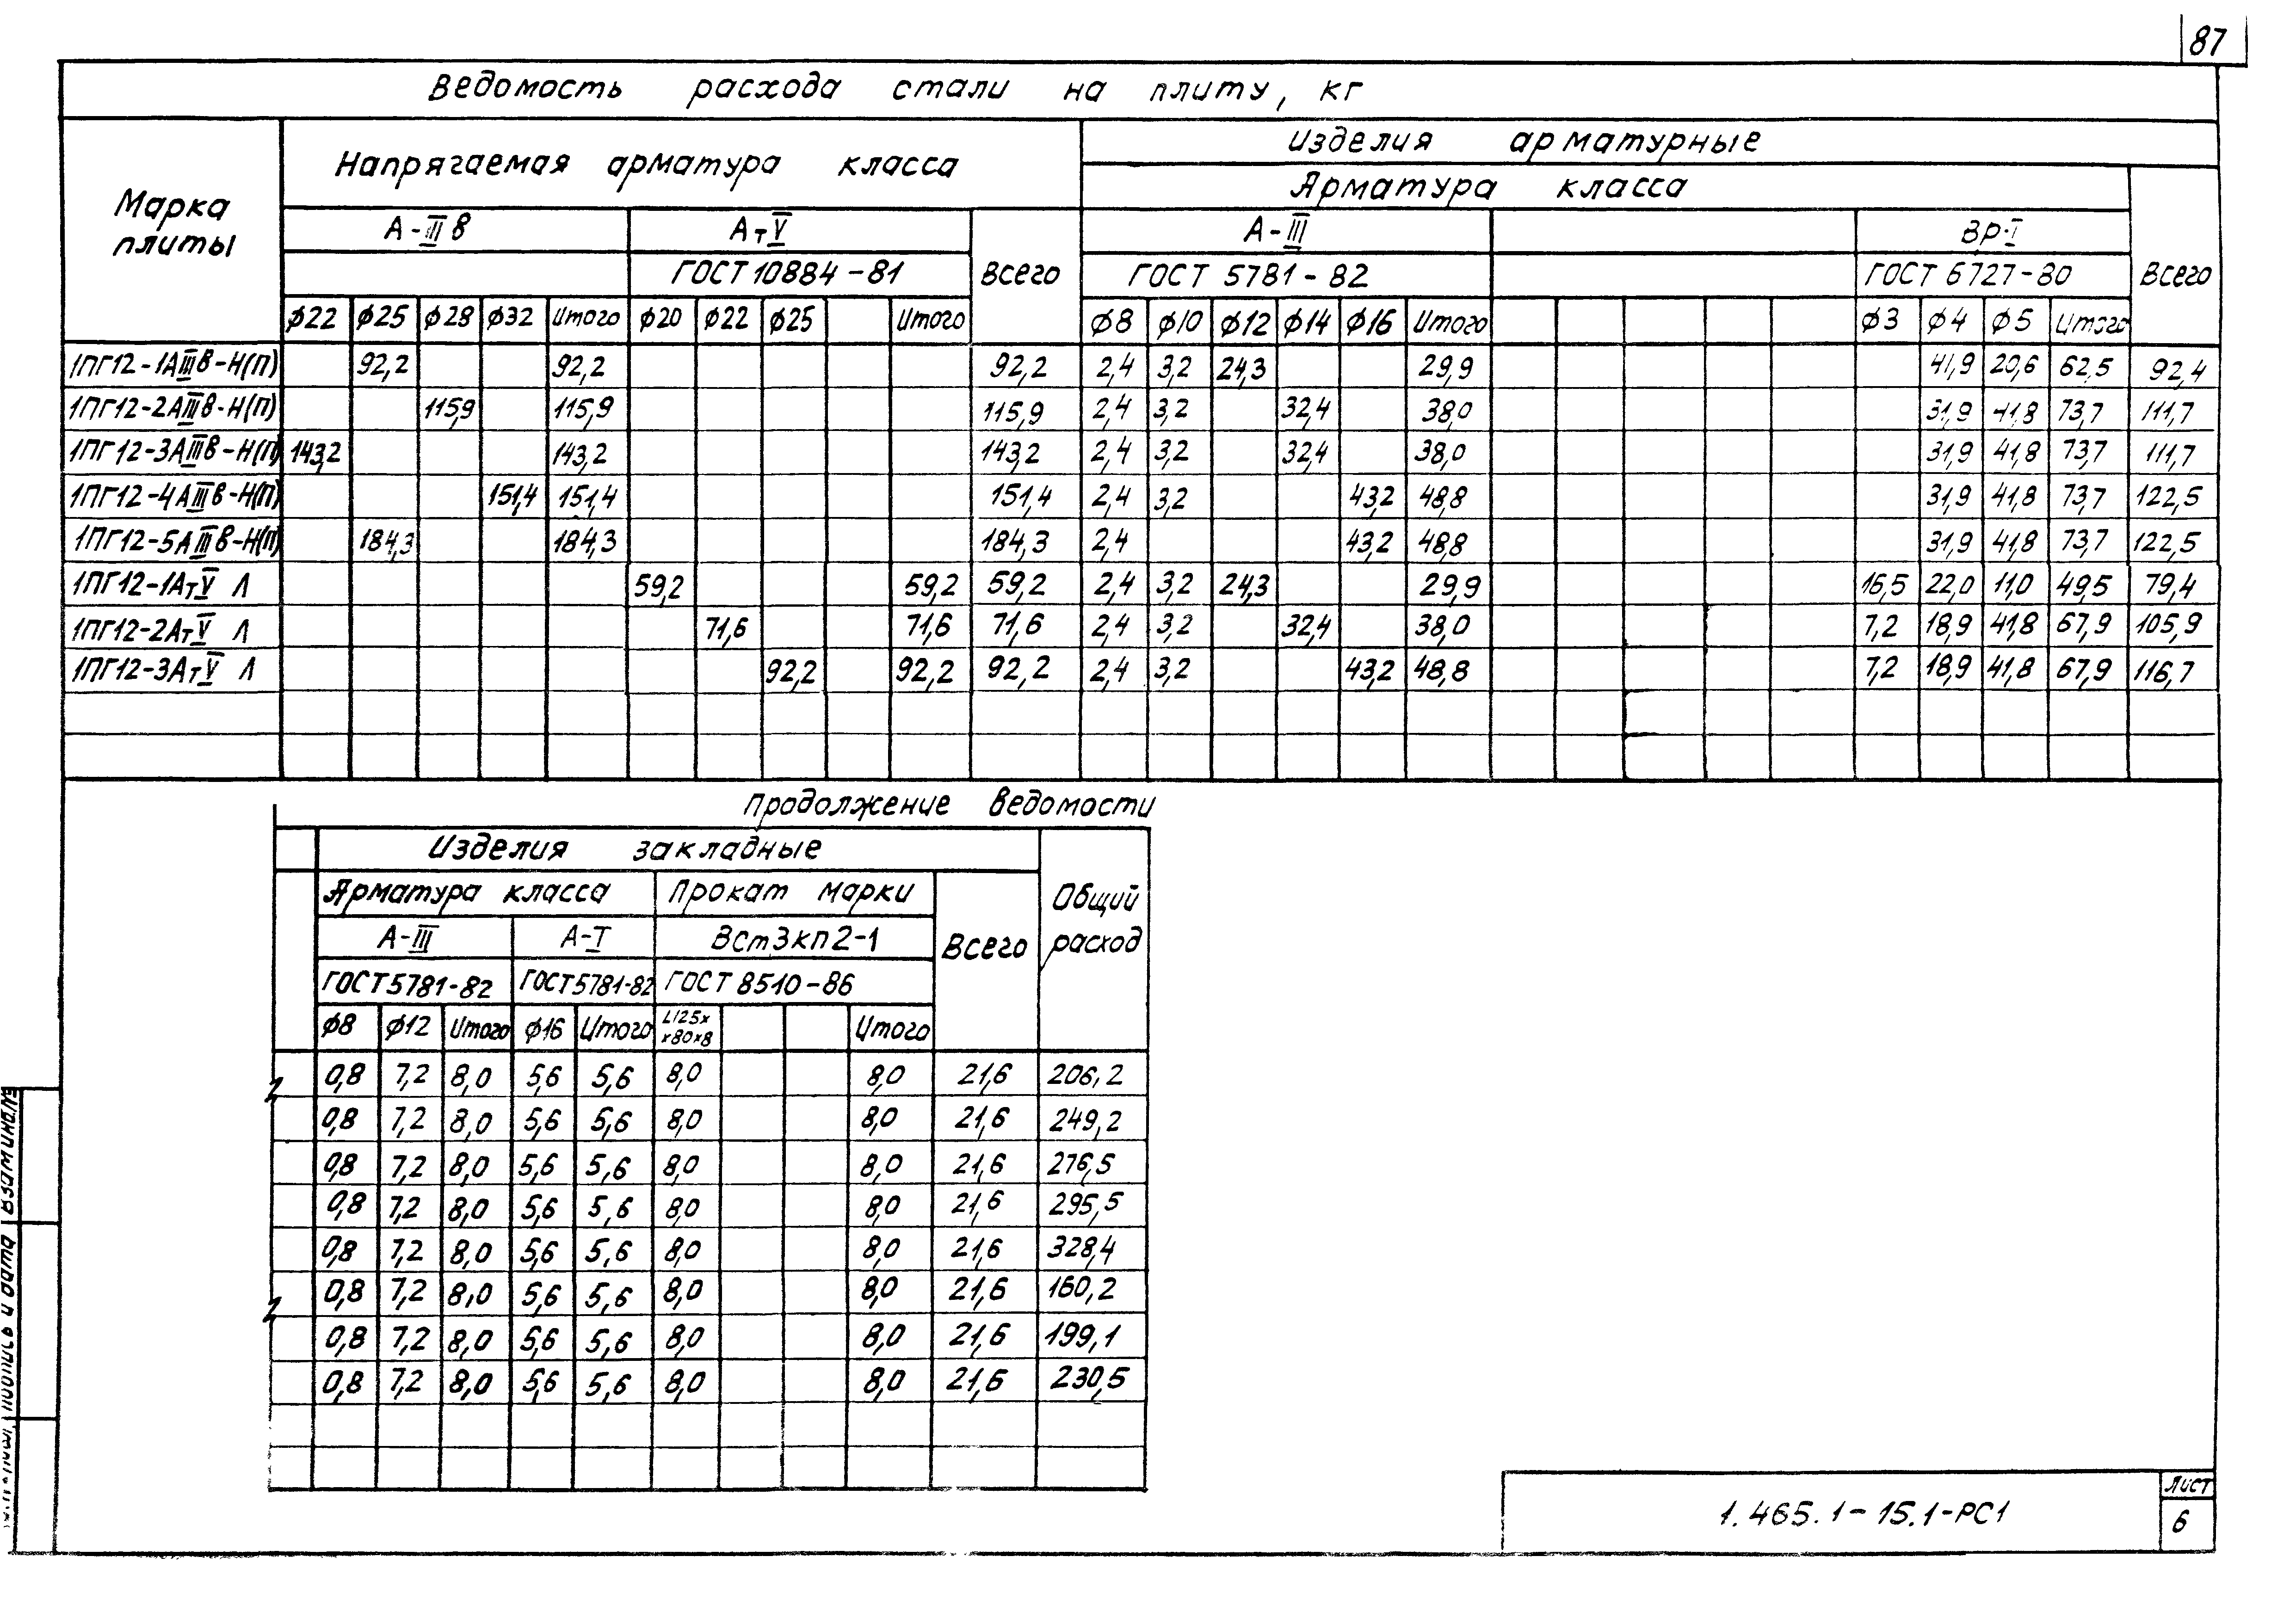 87
Ведомость расхода стали на плиту, кг
Марка плиты
Напрягаемая арматура класса
Изделия арматурные
Арматура класса
А-IIIв АтV Всего А-III Вр-I Всего
ГОСТ 10884-81 ГОСТ 5781-82 ГОСТ 6727-80
ф22 ф25 ф28 ф32 Итого ф20 ф22 ф25 Итого ф8 ф10 ф12 ф14 ф16 Итого ф3 ф4 ф5 Итого
1ПГ12-1АIIIв-Н(П) 92,2 92,2 92,2 2,4 3,2 24,3 29,9 41,9 20,6 62,5 92,4
1ПГ12-2АIIIв-Н(П) 115,9 115,9 115,9 2,4 3,2 32,4 38,0 31,9 41,8 73,7 111,7
1ПГ12-3АIIIв-Н(П) 143,2 143,2 143,2 2,4 3,2 32,4 38,0 31,9 41,8 73,7 111,7
1ПГ12-4АIIIв-Н(П) 151,4 151,4 151,4 2,4 3,2 43,2 48,8 31,9 41,8 73,7 122,5
1ПГ12-5АIIIв-Н(П) 184,3 184,3 184,3 2,4 43,2 48,8 31,9 41,8 73,7 122,5
1ПГ12-1АтV Л 59,2 59,2 59,2 2,4 3,2 24,3 29,9 16,5 22,0 11,0 49,5 79,4
1ПГ12-2АтV Л 71,6 71,6 71,6 2,4 3,2 32,4 38,0 7,2 18,9 41,8 67,9 105,9
1ПГ12-3АтV Л 92,2 92,2 92,2 2,4 3,2 43,2 48,8 7,2 18,9 41,8 67,9 116,7
Продолжение ведомости
Изделия закладные
Арматура класса Прокат марки Всего Общий расход
А-III А-I ВСт3кп2-1
ГОСТ 5781-82 ГОСТ 5781-82 ГОСТ 8510-86
ф8 ф12 Итого ф16 Итого L125х х80х8 Итого
0,8 7,2 8,0 5,6 5,6 8,0 8,0 21,6 206,2
0,8 7,2 8,0 5,6 5,6 8,0 8,0 21,6 249,2
0,8 7,2 8,0 5,6 5,6 8,0 8,0 21,6 276,5
0,8 7,2 8,0 5,6 5,6 8,0 8,0 21,6 295,5
0,8 7,2 8,0 5,6 5,6 8,0 8,0 21,6 328,4
0,8 7,2 8,0 5,6 5,6 8,0 8,0 21,6 160,2
0,8 7,2 8,0 5,6 5,6 8,0 8,0 21,6 199,1
0,8 7,2 8,0 5,6 5,6 8,0 8,0 21,6 230,5
1.465.1-15.1-РС1
Лист
6